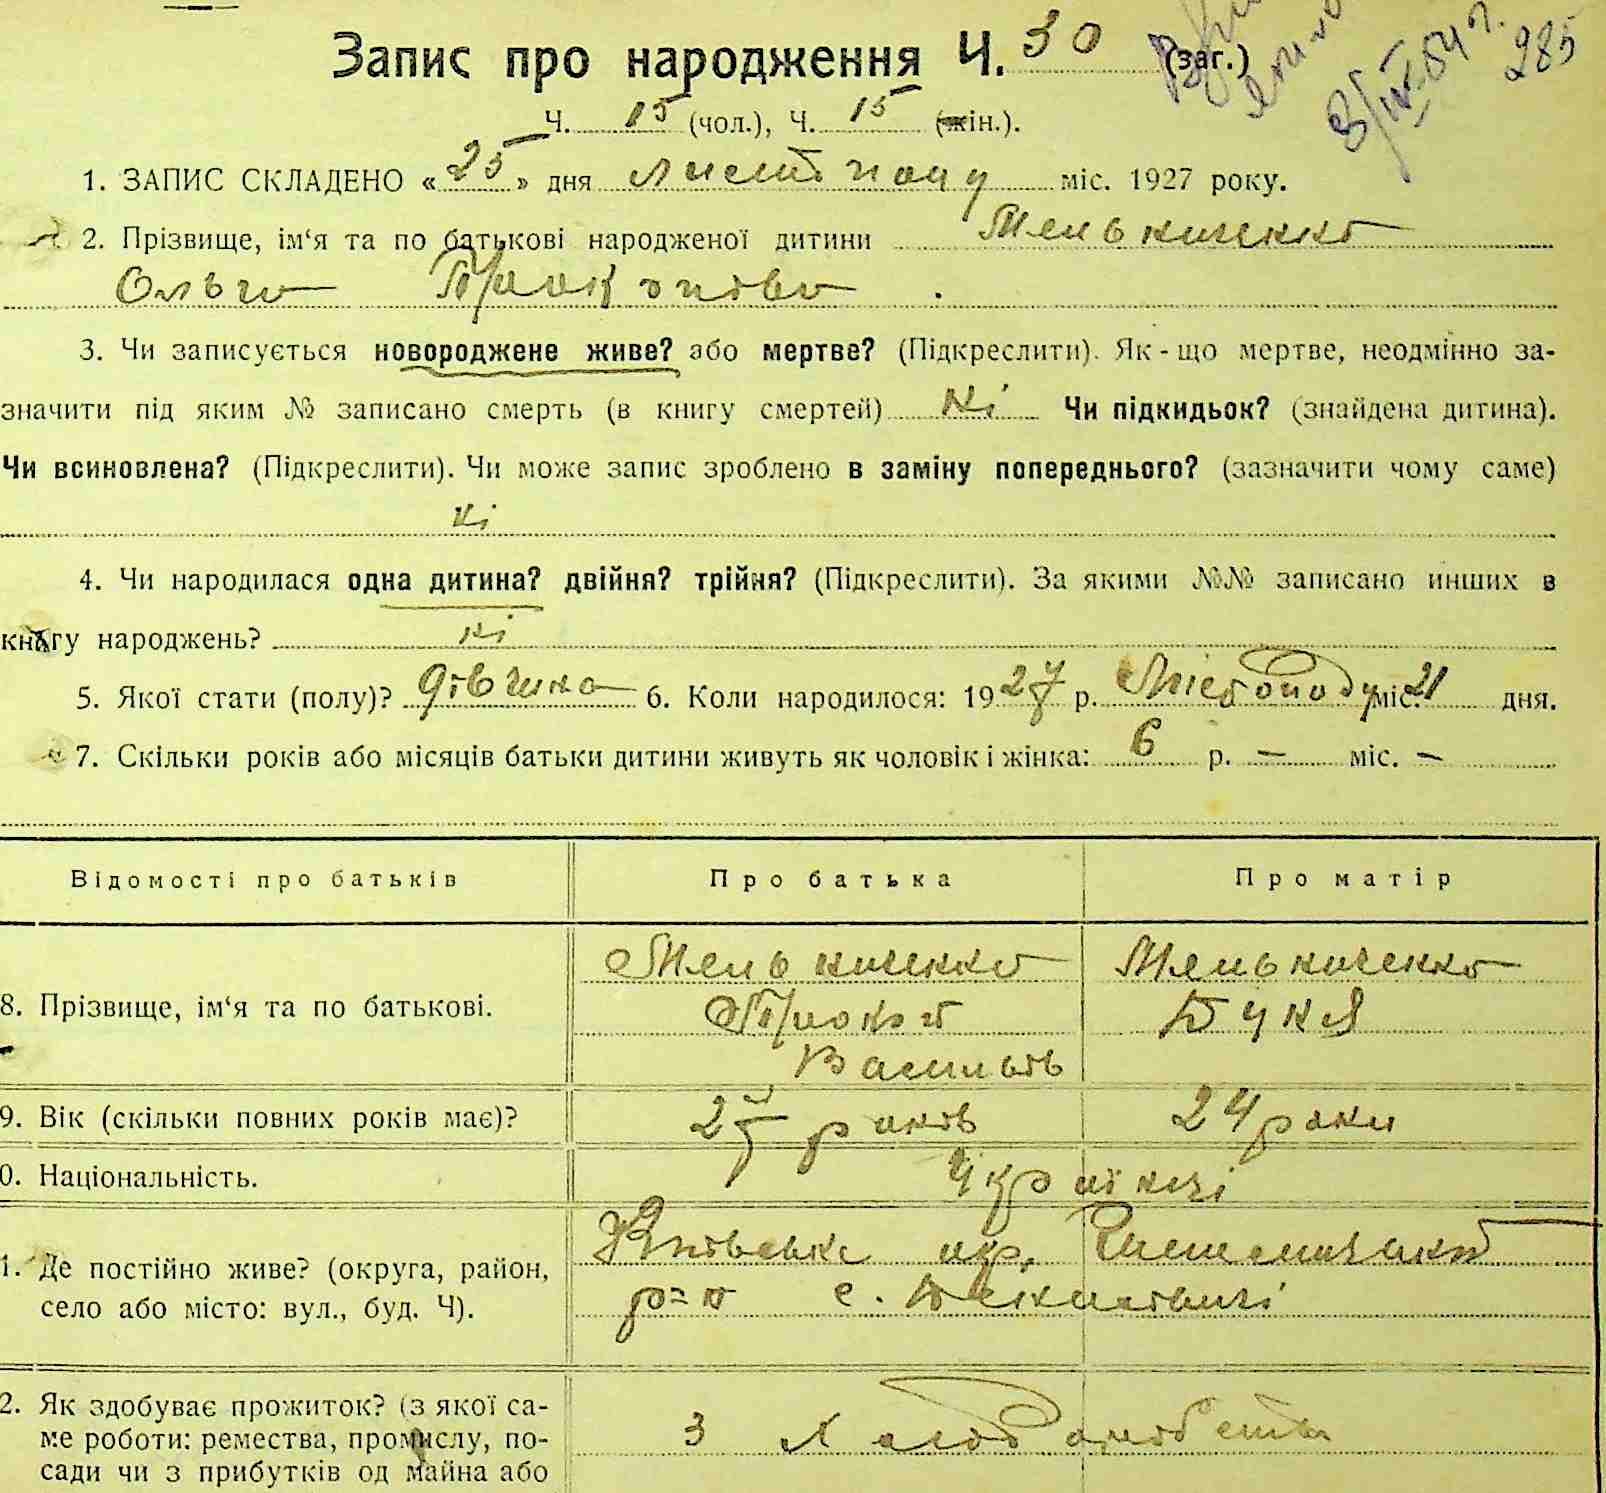 Запис про народження Ч. 30 (заг.)
285
3/IV-54 г.
Ч. 15 (чол.), Ч. 15 (жін.).
1. ЗАПИС СКЛАДЕНО «25» дня листопаду міс. 1927 року.
2. Прізвище, ім‘я та по батькові народженої дитини Мельниченко
Ольга Прокопівна
3. Чи записується новороджене живе? або мертве? (Підкреслити). Як-що мертве, неодмінно за-
значити під яким № записано смерть (в книгу смертей) ні Чи підкидьок? (знайдена дитина).
Чи всиновлена? (Підкреслити). Чи може запис зроблено в заміну попереднього? (зазначити чому саме)
ні
4. Чи народилася одна дитина? двійня? трійня? (Підкреслити). За якими №№ записано инших в
книгу народжень? ні
5. Якої стати (полу)? дівчина 6. Коли народилося: 1927 р. Листопаду міс. 21 дня.
7. Скільки років або місяців батьки дитини живуть як чоловік і жінка: 6 р. — міс. —
Відомості про батьків Про батька Про матір
8. Прізвище, ім‘я та по батькові. Мельниченко Мельниченко
Прокіп
Василів
9. Вік (скільки повних років має)? 27 років 24 роки
0. Національність. Українці
1. Де постійно живе? (округа, район, Київська окр.
село або місто: вул., буд. Ч). р-н с.
2. Як здобуває прожиток? (з якої са-
ме роботи: ремества, промислу, по- З хліборобства
сади чи з прибутків од майна або